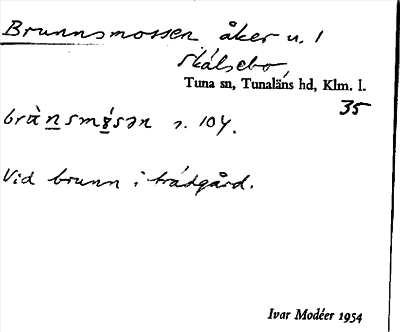 Brunnsmossen åker u. 1
Skälsebo
Tuna sn, Tunaläns hd, Klm. l.
35
s. 104.
Vid brunn i trädgård.
Ivar Modéer 1954